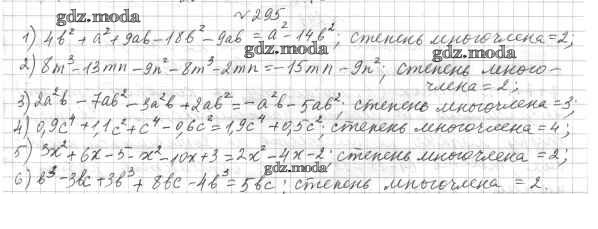 gdz.moda
№ 295
1) 4b² + a² + 9ab - 18b² - 9ab = a² - 14b²; степень многочлена = 2;
gdz.moda gdz.moda
2) 8m³ - 13mn - 9n² - 8m³ - 2mn = -15mn - 9n²; степень много-
члена = 2;
3) 2a²b - 7ab² - 3a²b + 2ab² = -a²b - 5ab²; степень многочлена = 3;
4) 0,9c⁴ + 1,1c² + c⁴ - 0,6c² = 1,9c⁴ + 0,5c²; степень многочлена = 4;
5) 3x² + 6x - 5 - x² - 10x + 3 = 2x² - 4x - 2; степень многочлена = 2;
gdz.moda
6) b³ - 3bc + 3b³ + 8bc - 4b³ = 5bc; степень многочлена = 2.